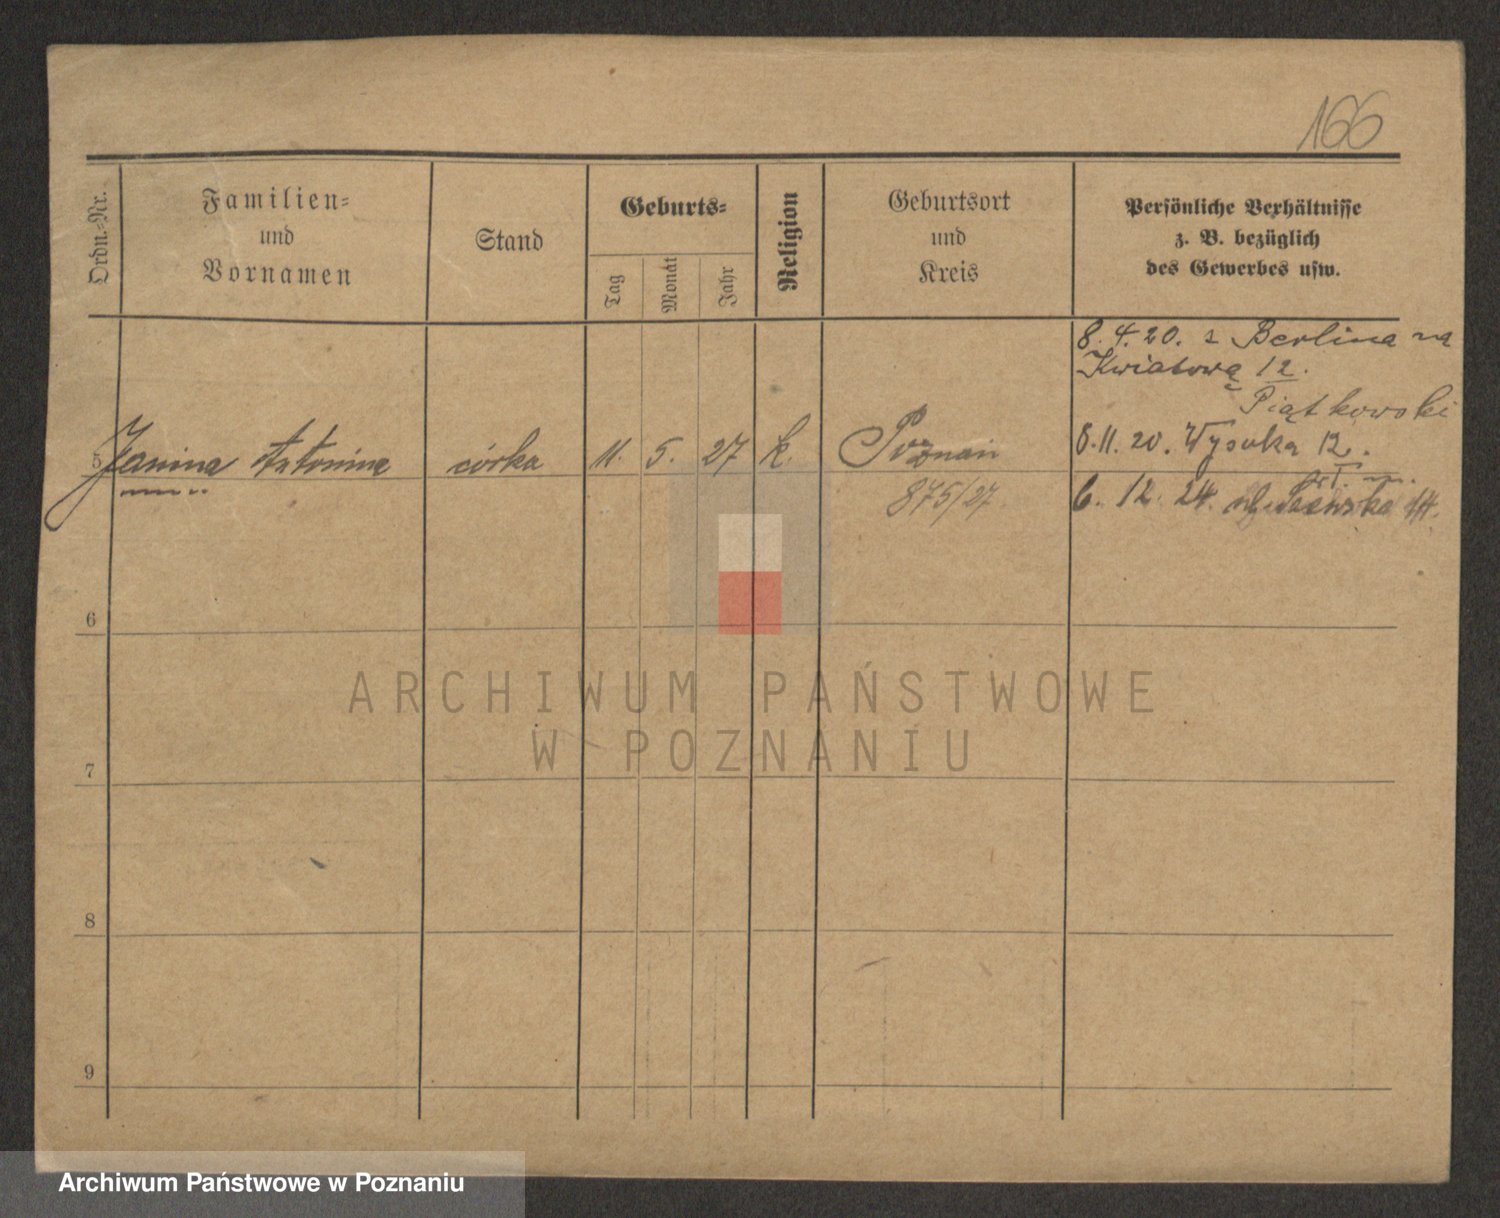 166
Ordn.-Nr.
Familien-
und
Vornamen
Stand
Geburts-
Tag
Monat
Jahr
Religion
Geburtsort
und
Kreis
Persönliche Verhältnisse
z. B. bezüglich
des Gewerbes usw.
8. 4. 20. z Berlina na
Kwiatową 12.
Piątkowski
8. 11. 20. Wysoka 12.
5 Janina Antonina córka 11. 5. 27 k. Poznań
875/27
6. 12. 24. 14.
6
7
8
9
ARCHIWUM PAŃSTWOWE
W POZNANIU
Archiwum Państwowe w Poznaniu